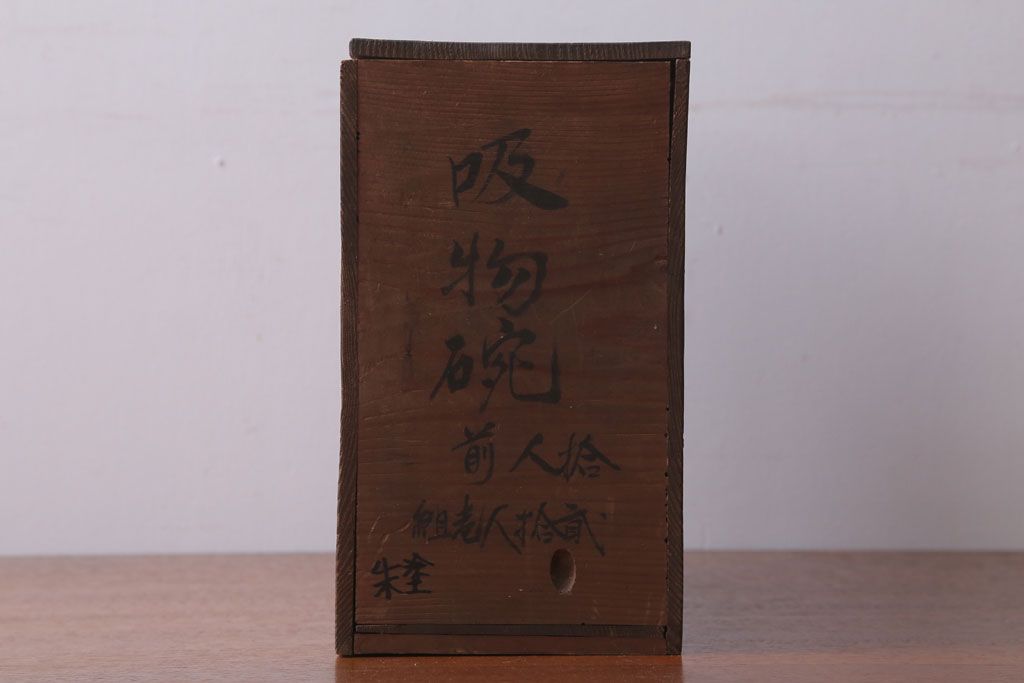 吸物碗
拾人前
貳拾人老組
朱塗